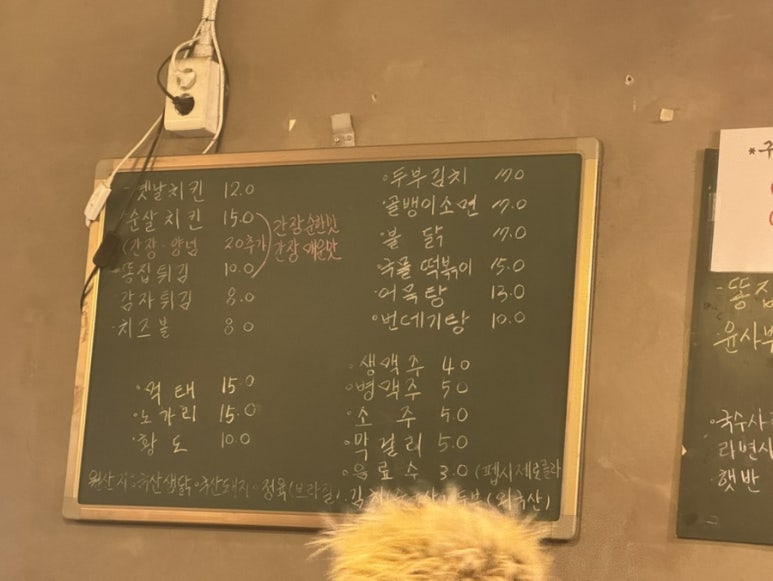 ·옛날치킨 12.0
·순살치킨 15.0
(간장·양념 2.0추가)
간장순한맛
간장매운맛
·똥집튀김 10.0
·감자튀김 8.0
·치즈볼 8.0
·먹태 15.0
·노가리 15.0
·황도 10.0
·두부김치 17.0
·골뱅이소면 17.0
·불닭 17.0
·국물떡볶이 15.0
·어묵탕 13.0
·번데기탕 10.0
·생맥주 4.0
·병맥주 5.0
·소주 5.0
·막걸리 5.0
·음료수 3.0 (펩시제로콜라
원산지:국산생닭·국산돼지·정육(브라질)·김치 두부(외국산)
*구
·똥집
·윤사부
·국수사
라면사
·햇반